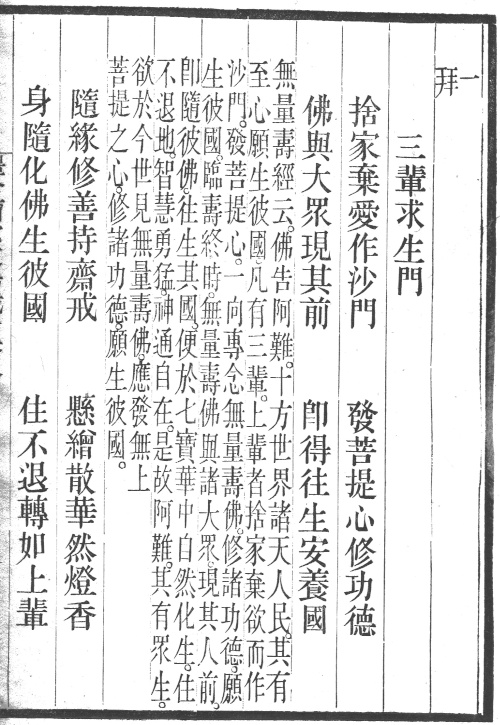 一拜
三輩求生門
捨家棄愛作沙門　發菩提心修功德
佛與大眾現其前　卽得往生安養國
無量壽經云。佛告阿難。十方世界諸天人民。其有
至心願生彼國。凡有三輩。上輩者捨家棄欲而作
沙門。發菩提心。一向專念無量壽佛。修諸功德。願
生彼國。臨壽終時。無量壽佛與諸大眾。現其人前。
卽隨彼佛。往生其國。便於七寶華中自然化生。住
不退地。智慧勇猛。神通自在。是故阿難。其有眾生。
欲於今世見無量壽佛。應發無上
菩提之心。修諸功德。願生彼國。
隨緣修善持齋戒　懸繒散華然燈香
身隨化佛生彼國　住不退轉如上輩